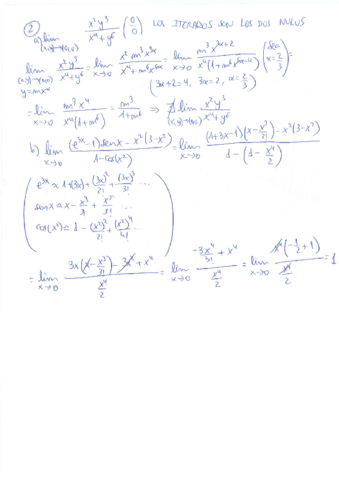 ② a) lim (x,y)→(0,0) x²y³/(x⁴+y⁶) (0/0) LOS ITERADOS SON LOS DOS NULOS
lim (x,y)→(0,0) y=mx^α x²y³/(x⁴+y⁶) = lim x→0 x² m³ x^3α/(x⁴+m⁶x^6α) = lim x→0 m³ x^(3α+2)/(x⁴(1+m⁶x^(6α-4))) (Sea α=2/3) =
(3α+2=4, 3α=2, α=2/3)
= lim x→0 m³x⁴/(x⁴(1+m⁶)) = m³/(1+m⁶) ⇒ ∄ lim (x,y)→(0,0) x²y³/(x⁴+y⁶)
b) lim x→0 ((e^3x-1)senx - x²(3-x²))/(1-cos(x²)) = lim x→0 ((1+3x-1)(x-x³/3!) - x²(3-x²))/(1-(1-x⁴/2))
e^3x ≈ 1+(3x)+(3x)²/2!+(3x)³/3! ...
senx ≈ x-x³/3!+x⁵/5! ...
cos(x²) ≈ 1-(x²)²/2!+(x²)⁴/4! ...
= lim x→0 (3x(x-x³/3!)-3x²+x⁴)/(x⁴/2) = lim x→0 (-3x⁴/3!+x⁴)/(x⁴/2) = lim x→0 x⁴(-1/2+1)/(x⁴/2) = 1